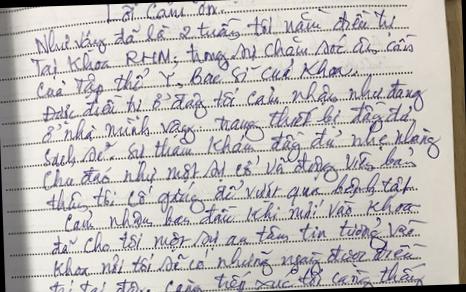 Lời Cảm ơn.
Như vậy đã là 2 tuần tôi nằm điều trị
Tại Khoa RHM, trong sự chăm sóc ân cần
của Tập thể Y Bác sĩ của Khoa.
Được điều trị ở đây tôi cảm nhận như đang
ở nhà mình vậy, trang thiết bị đầy đủ,
sạch sẽ sự thăm khám đầy đủ nhẹ nhàng
chu đáo như một sự cổ vũ động viên bản
thân tôi cố gắng để vượt qua bệnh tật
Cảm nhận ban đầu khi mới vào Khoa
đã cho tôi một sự an tâm tin tưởng vào
Khoa nơi tôi sẽ có những ngày được điều
trị tại đây, càng tiếp xúc tôi càng thấy